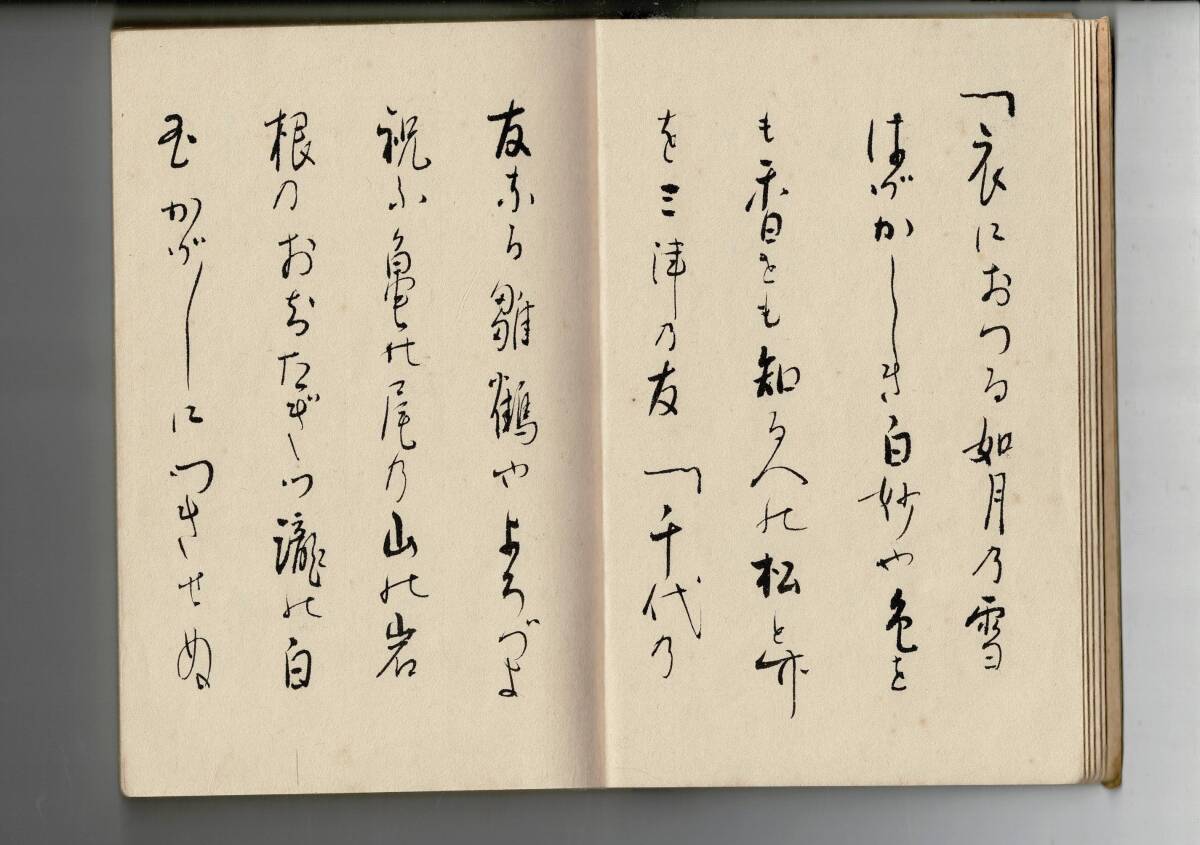 〽衣におつる如月の雪
はづかしき白妙や色を
も香をも知る人の松と竹
を三津の友〽千代の
友なる雛鶴やよろづよ
祝ふ亀の尾の山の岩
根のおちたぎつ瀧の白
玉かづ〳〵につきせぬ